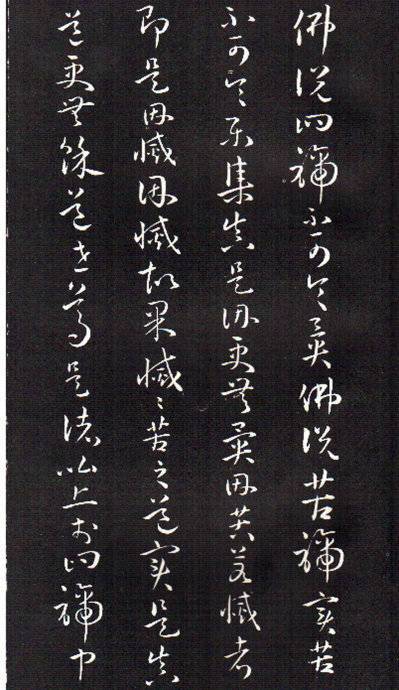 佛說四諦不可令異佛說苦諦實苦
不可令樂集真是因更無異因苦若滅者
即是因滅因滅故果滅々苦之道實是真
道更無餘道世尊是諸比丘於四諦中